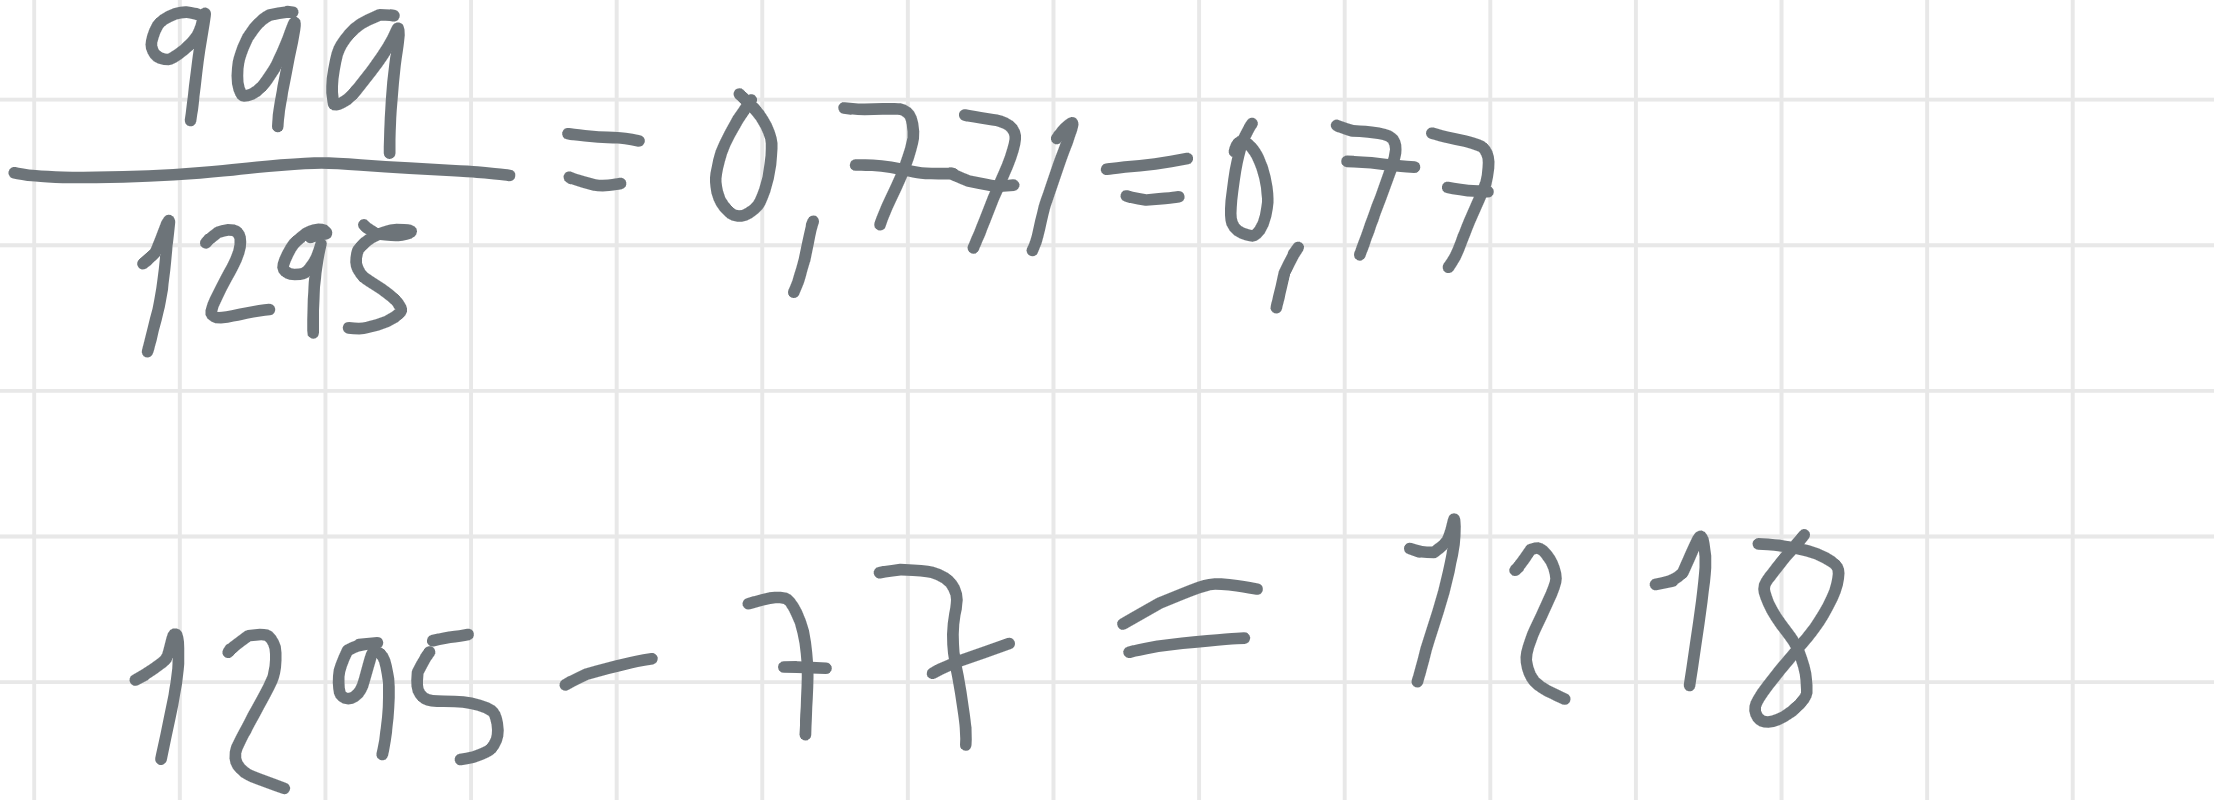 999
1295 = 0,771 = 0,77
1295 - 77 = 1218